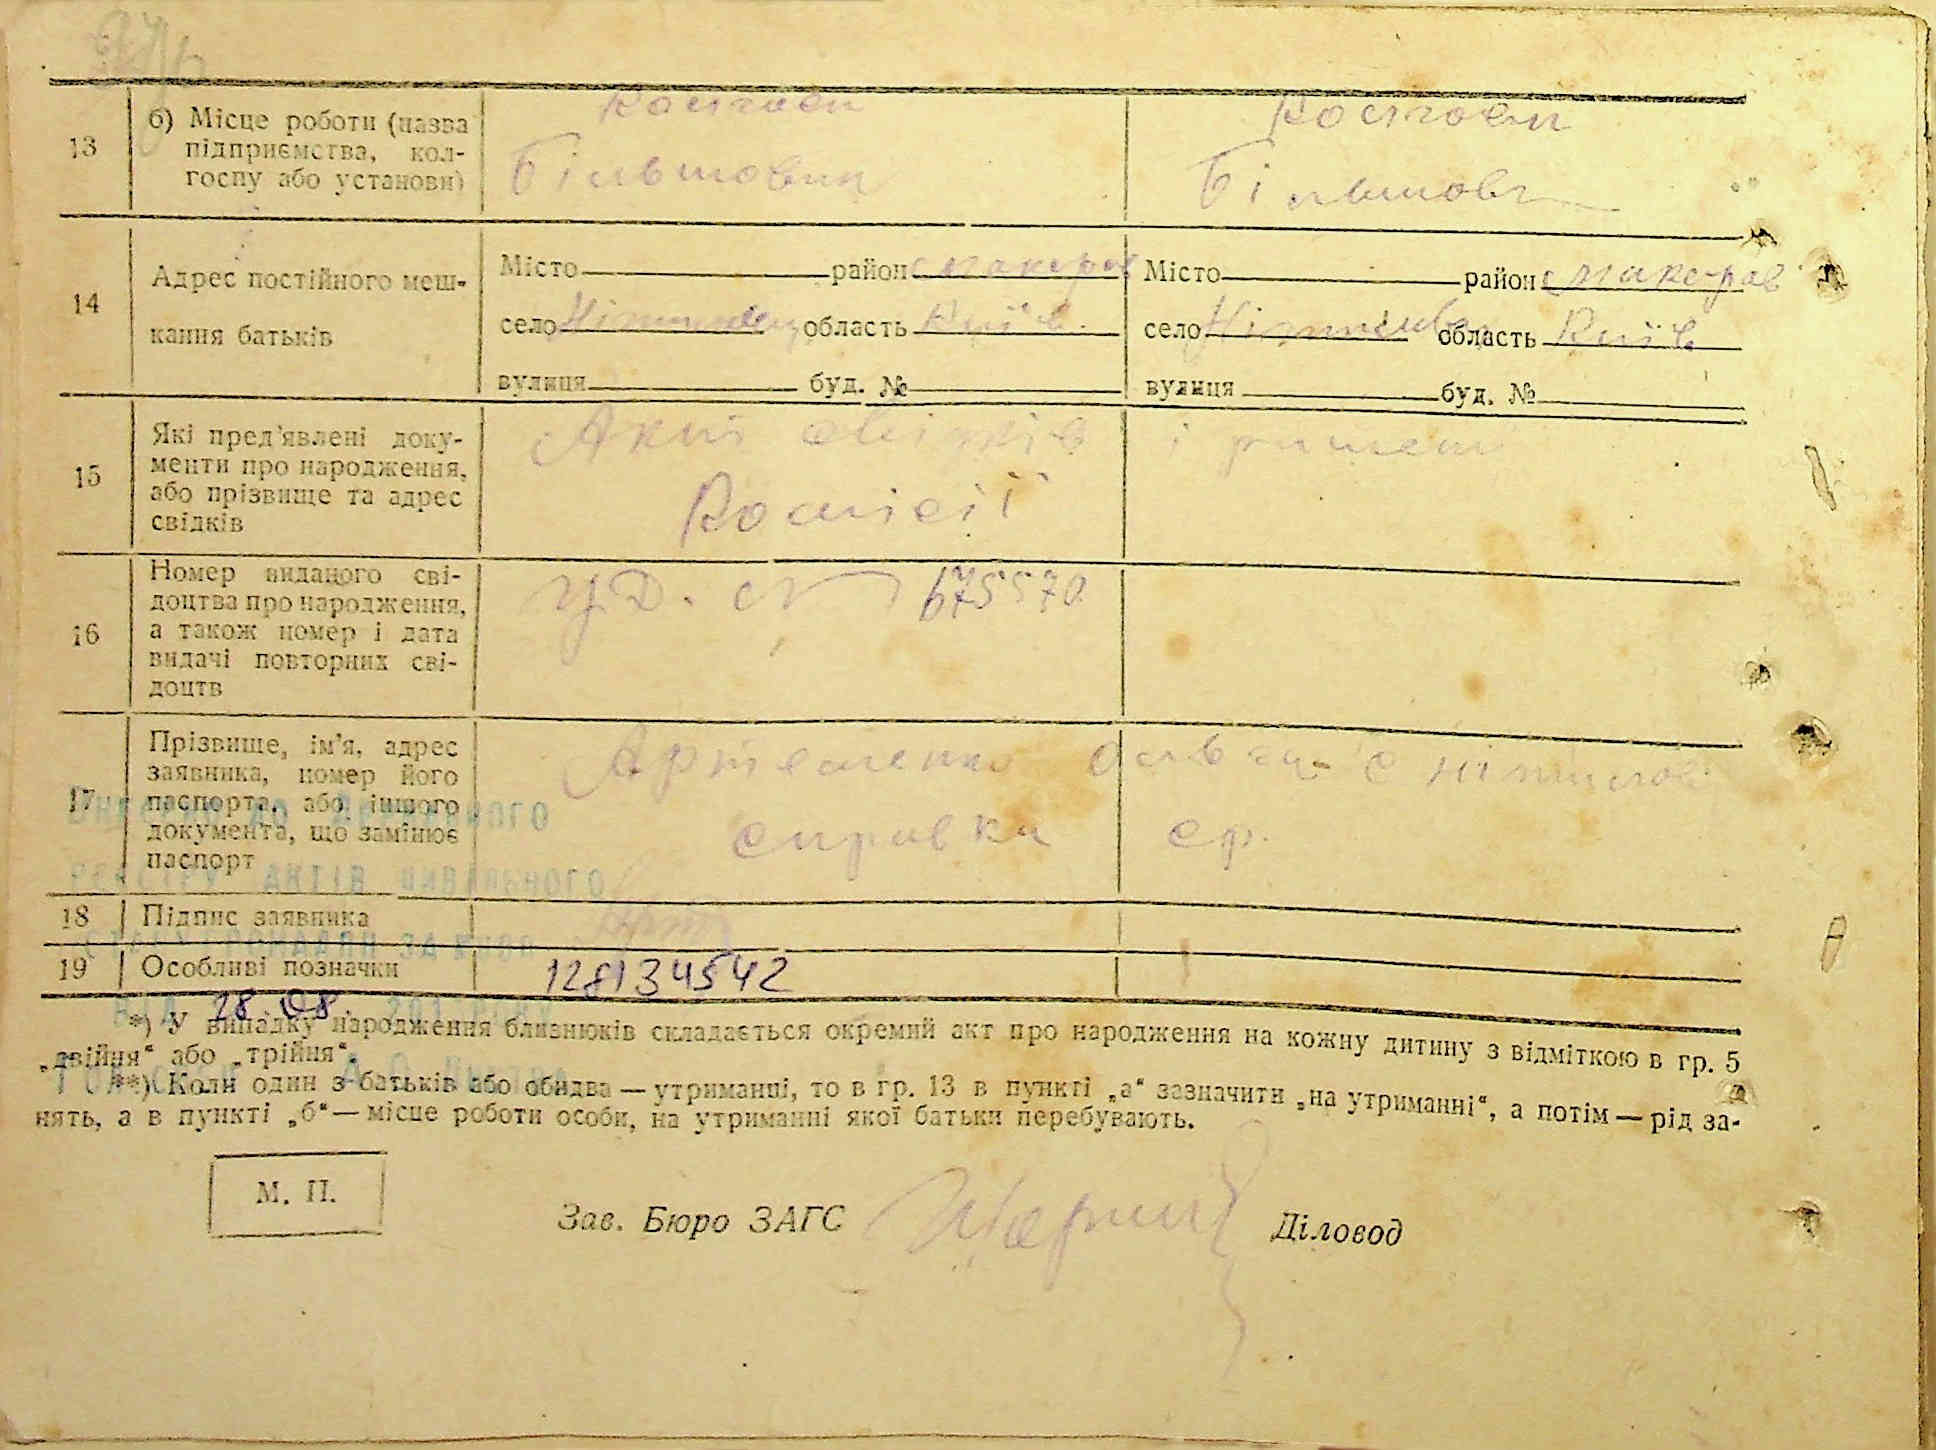 13
б) Місце роботи (назва
підприємства, кол-
госпу або установи)
Більшовик
14
Адрес постійного меш-
кання батьків
Місто район Макарів
село область Київ.
вулиця буд. №
Місто район Макаров
село область Київ
вулиця буд. №
15
Які пред'явлені доку-
менти про народження,
або прізвище та адрес
свідків
Акт свідків і
Комісії
16
Номер виданого сві-
доцтва про народження,
а також номер і дата
видачі повторних сві-
доцтв
675570
17
Прізвище, ім'я, адрес
заявника, номер його
паспорта, або іншого
документа, що замінює
паспорт
Артеменко
справка
18
Підпис заявника
19
Особливі позначки
128134542
28.08.
*) У випадку народження близнюків складається окремий акт про народження на кожну дитину з відміткою в гр. 5
„двійня“ або „трійня“.
**) Коли один з батьків або обидва — утриманці, то в гр. 13 в пункті „а“ зазначити „на утриманні“, а потім — рід за-
нять, а в пункті „б“ — місце роботи особи, на утриманні якої батьки перебувають.
М. П.
Зав. Бюро ЗАГС
Діловод